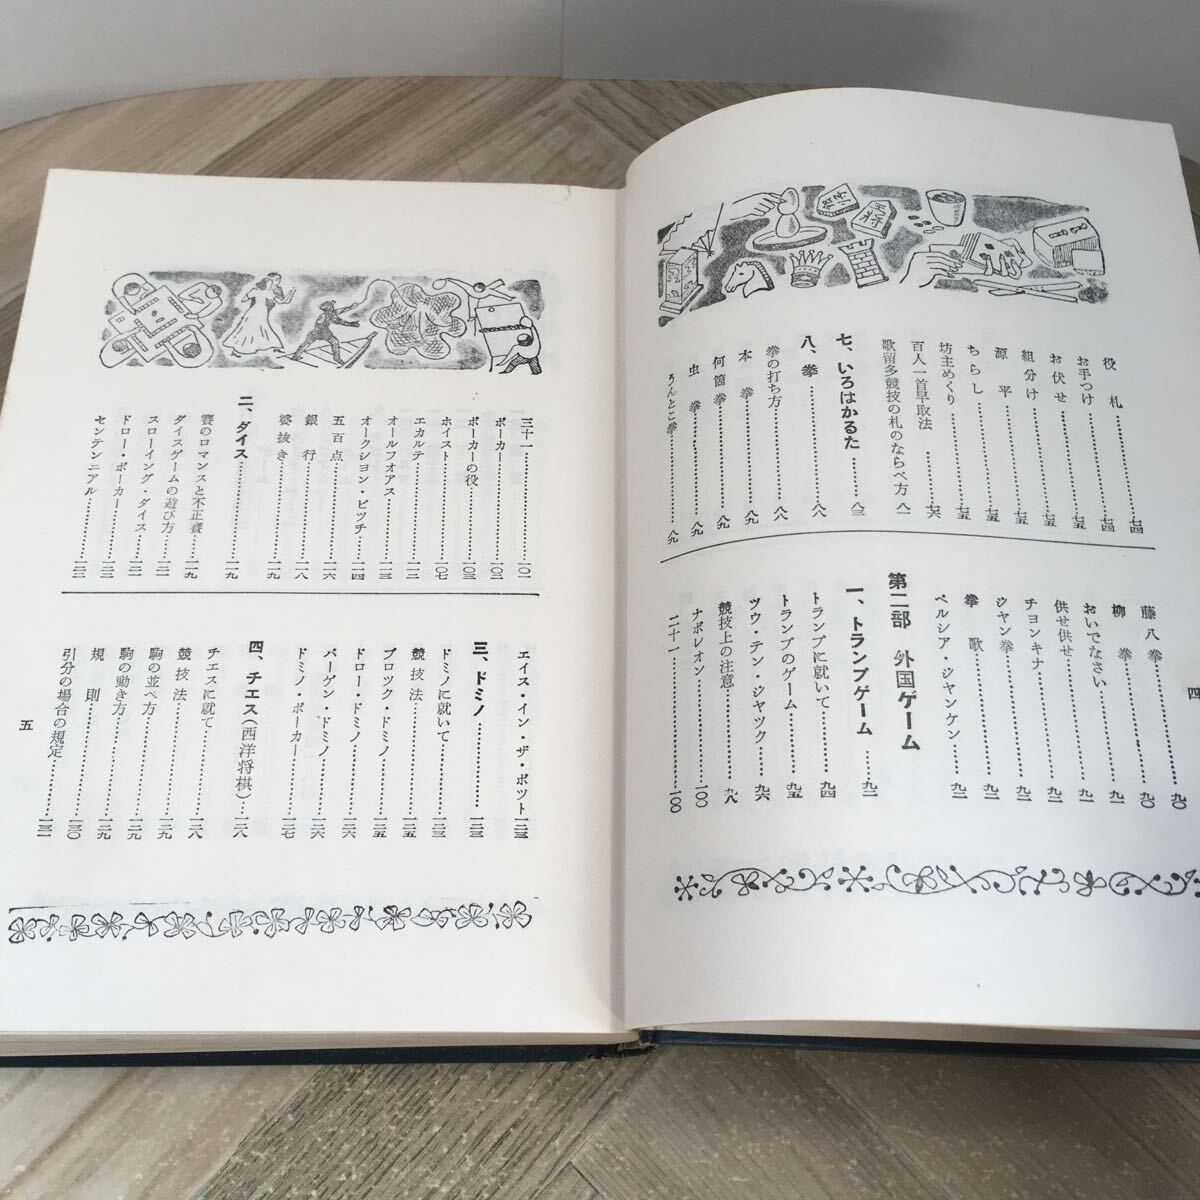 役札……七四
お手つけ……七四
お伏せ……七五
組分け……七五
源平……七五
ちらし……七五
坊主めくり……七五
百人一首早取法……七六
歌留多競技の札のならべ方……八一
七、いろはかるた……八三
八、拳……八八
拳の打ち方……八八
本拳……八九
何箇拳……八九
虫拳……八九
うんとこ拳……八九
藤八拳……九〇
柳拳……九一
おいでなさい……九〇
供せ供せ……九一
チヨンキナ……九一
ジヤン拳……九一
拳歌……九二
ペルシア・ジヤンケン……九二
第二部 外国ゲーム
一、トランプゲーム……九二
トランプに就いて……九四
トランプのゲーム……九五
ツウ・テン・ジヤツク……九六
競技上の注意……九八
ナポレオン……一〇〇
二十一……一〇〇
四
三十一……一〇一
ポーカー……一〇二
ポーカーの役……一〇三
ホイスト……一〇七
エカルテ……一一二
オールフオアス……一一三
オークション・ピツチ……一一四
五百点……一一六
銀行……一一八
婆抜き……一一九
二、ダイス……一一九
賽のロマンスと不正賽……一一九
ダイスゲームの遊び方……一二一
スローイング・ダイス……一二一
ドロー・ポーカー……一二二
センテンニアル……一二二
エイス・イン・ザ・ポツト……一二三
三、ドミノ……一二三
ドミノに就いて……一二三
競技法……一二五
ブロツク・ドミノ……一二五
ドロー・ドミノ……一二六
バーゲン・ドミノ……一二六
ドミノ・ポーカー……一二七
四、チエス(西洋将棋)……一二八
チエスに就て……一二八
競技法……一二九
駒の並べ方……一二九
駒の動き方……一二九
規則……一二九
引分の場合の規定……一三〇
五